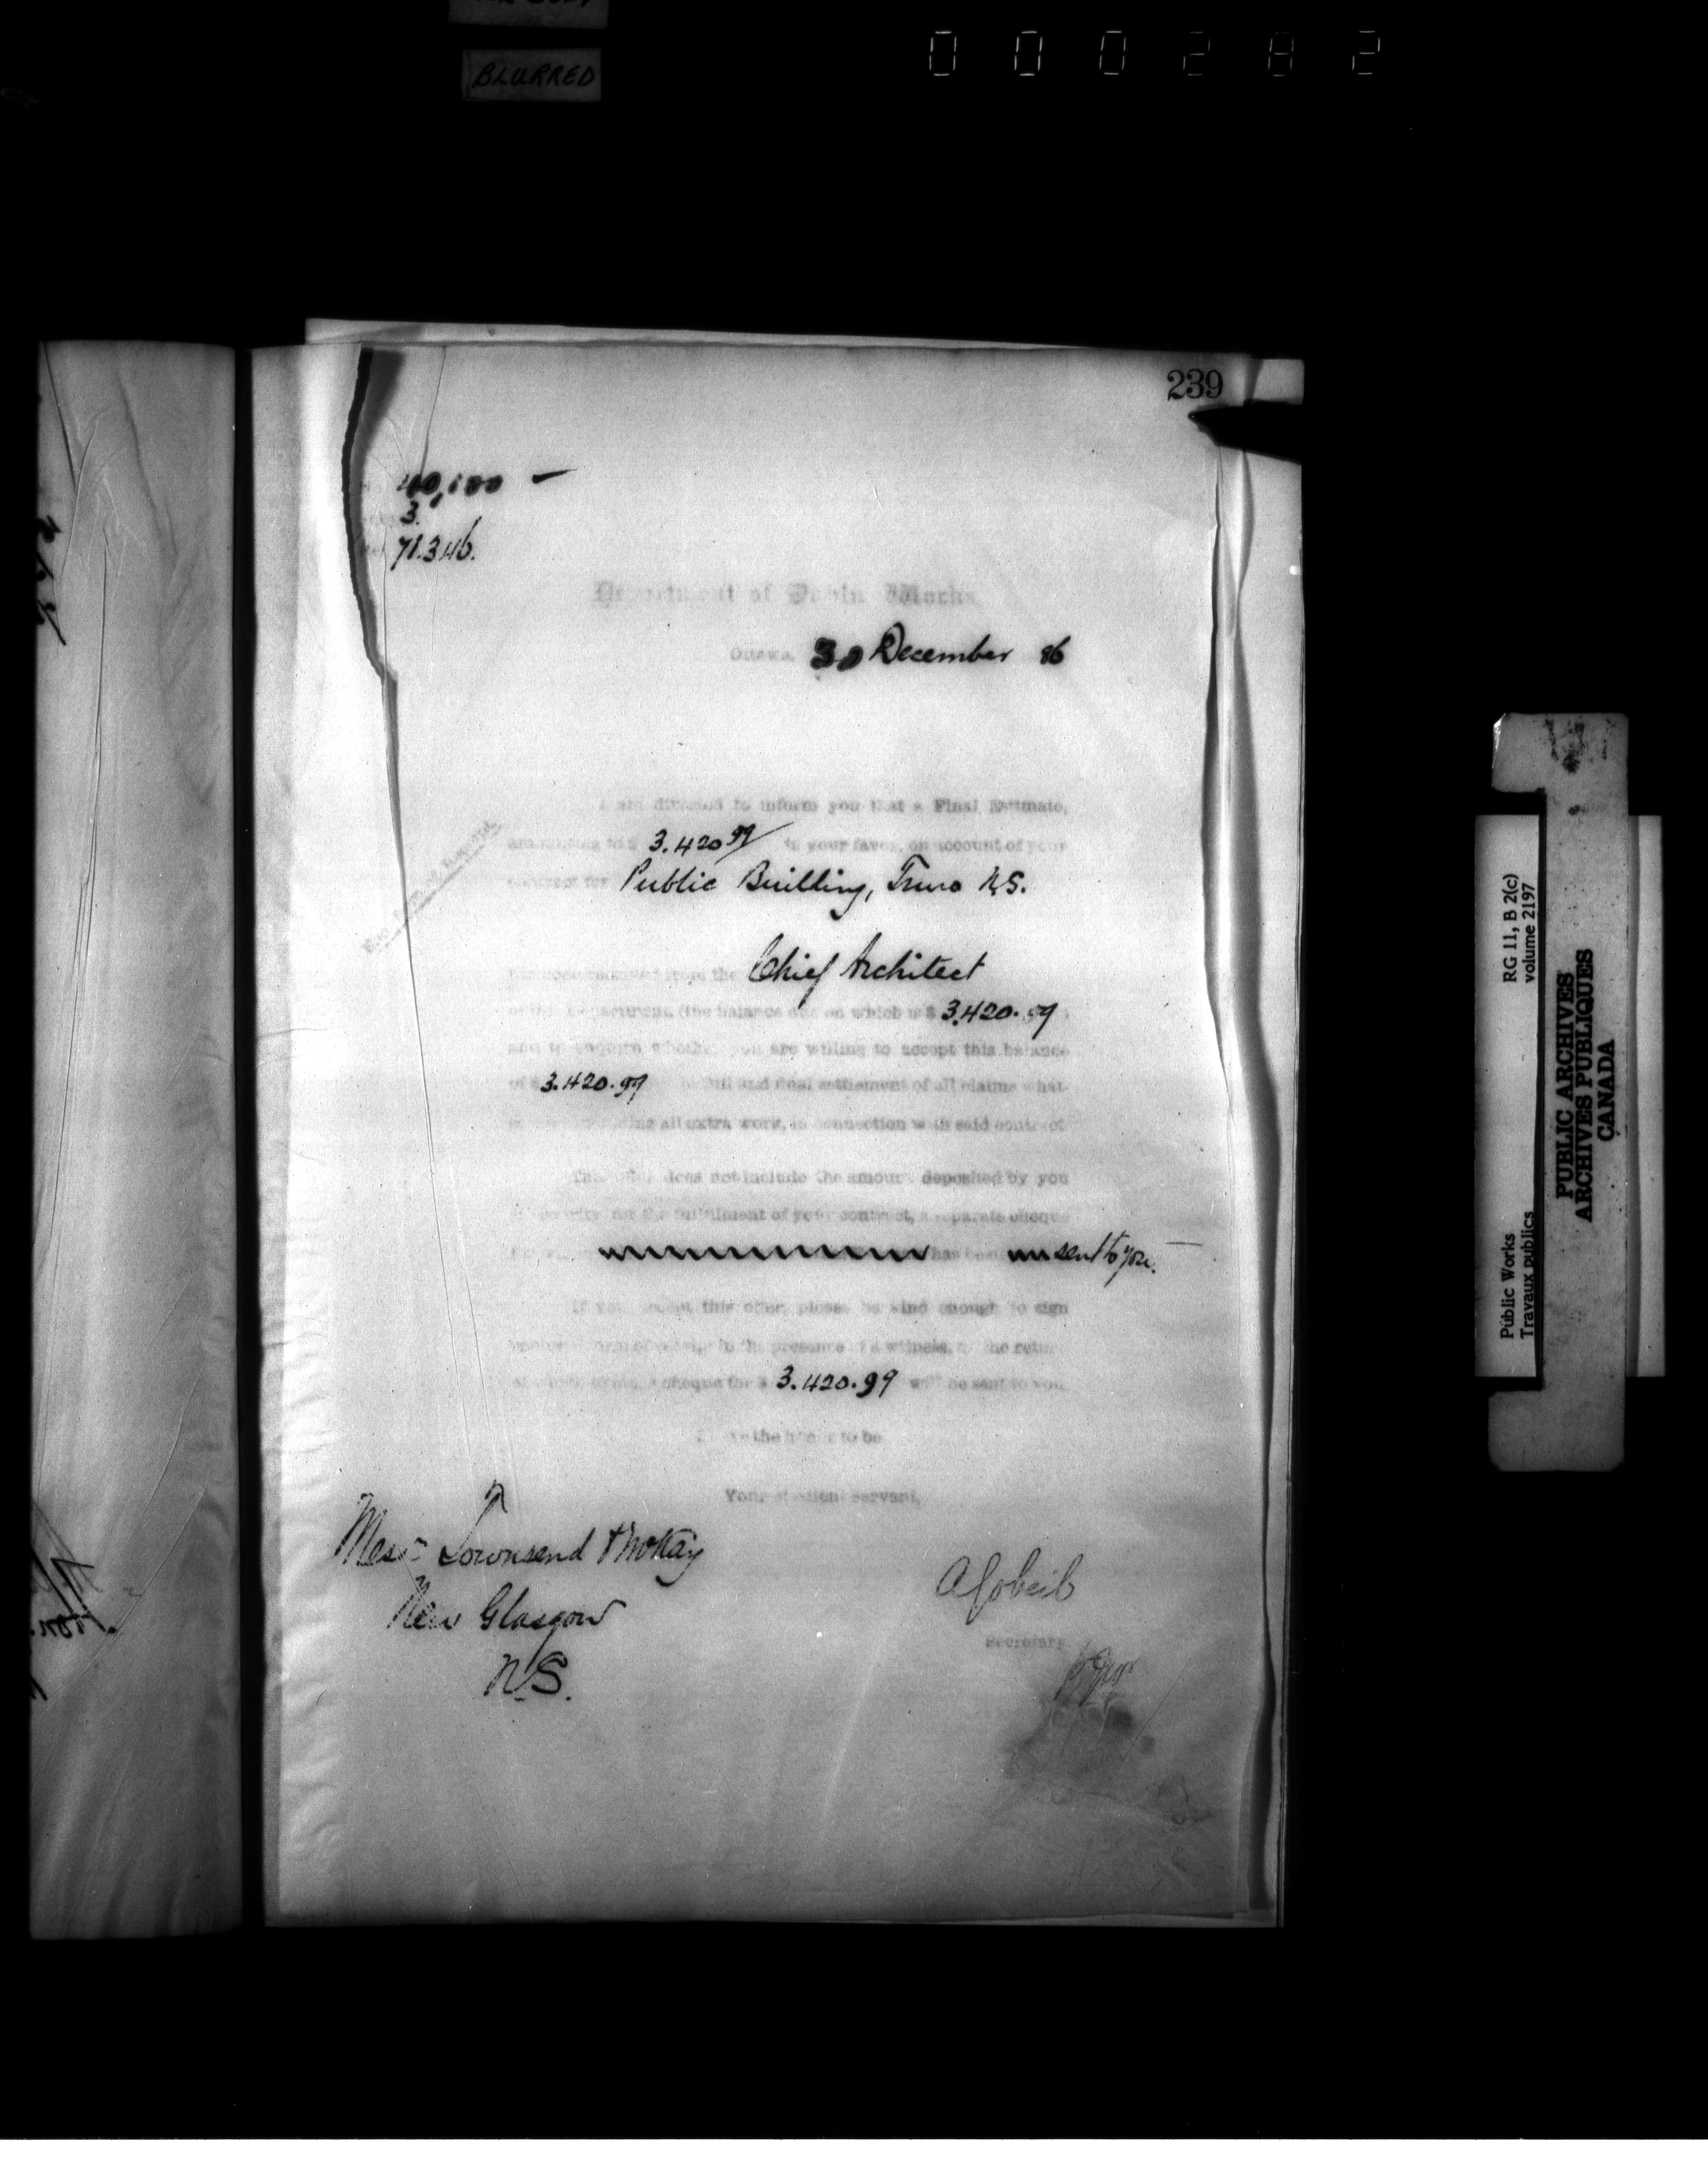 BLURRED
000282
239
40,180 —
3.
71.346.
Department of Public Works
Ottawa, 30 December 86
I am directed to inform you that a Final Estimate,
amounting to $ 3.420 99/ in your favor, on account of your
contract for Public Building, Truro N.S.
has been received from the Chief Architect
of this Department, (the balance due on which is $ 3,420.99
and to enquire whether you are willing to accept this balance
of $ 3.420.99 in full and final settlement of all claims what-
all extra work, in connection with said contract
This offer does not include the amount deposited by you
as security for the fulfilment of your contract, a separate cheque
has been sent to you.
If you accept this offer, please be kind enough to sign
form of receipt in the presence of a witness, on the return
of which to me, a cheque for $ 3.420.99 will be sent to you.
I have the honor to be
Your obedient servant,
Messrs Townsend & McKay
New Glasgow
N.S.
A Gobeil
Secretary
Public Works
Travaux publics
RG 11, B 2(c)
volume 2197
PUBLIC ARCHIVES
ARCHIVES PUBLIQUES
CANADA